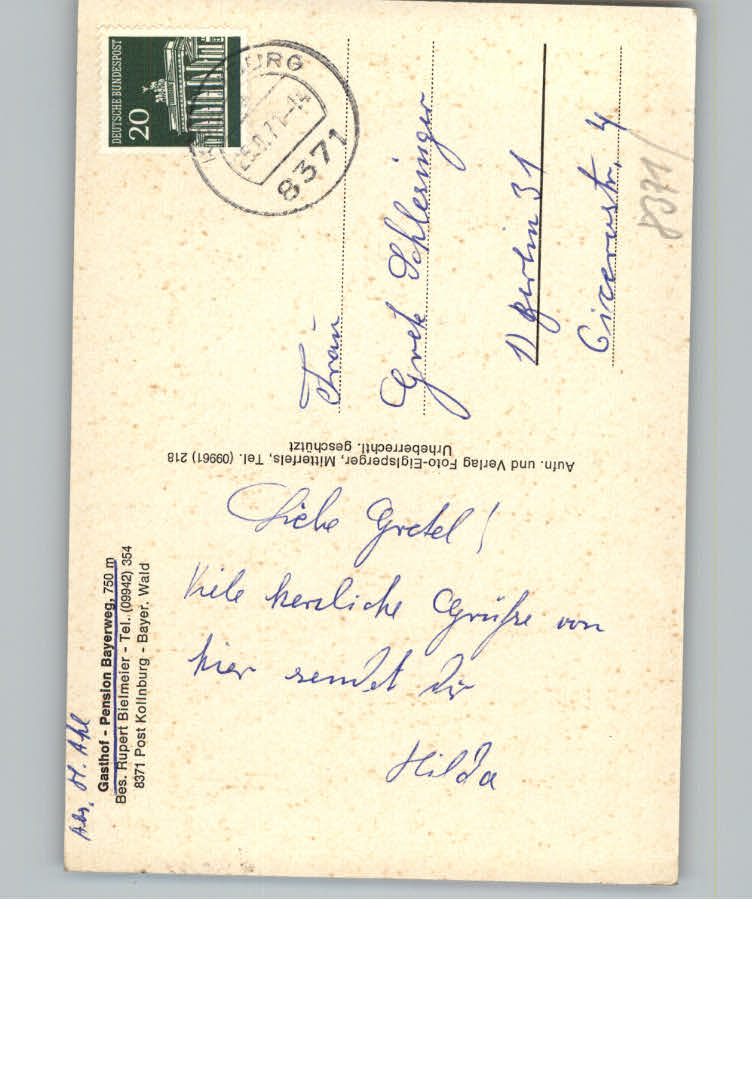 Abs. H. Ahl
Gasthof - Pension Bayerweg, 750 m
Bes. Rupert Bielmeier - Tel. (09942) 354
8371 Post Kollnburg - Bayer. Wald
Liebe Gretel!
Viele herzliche Grüße von
hier sendet Dir
Hilda
Aufn. und Verlag Foto-Eiglsperger, Mitterfels, Tel. (09961) 218
Urheberrechtl. geschützt
DEUTSCHE BUNDESPOST
20
8371
Frau
Grete Schlesinger
1 Berlin 31
Cicerostr. 4
8371/